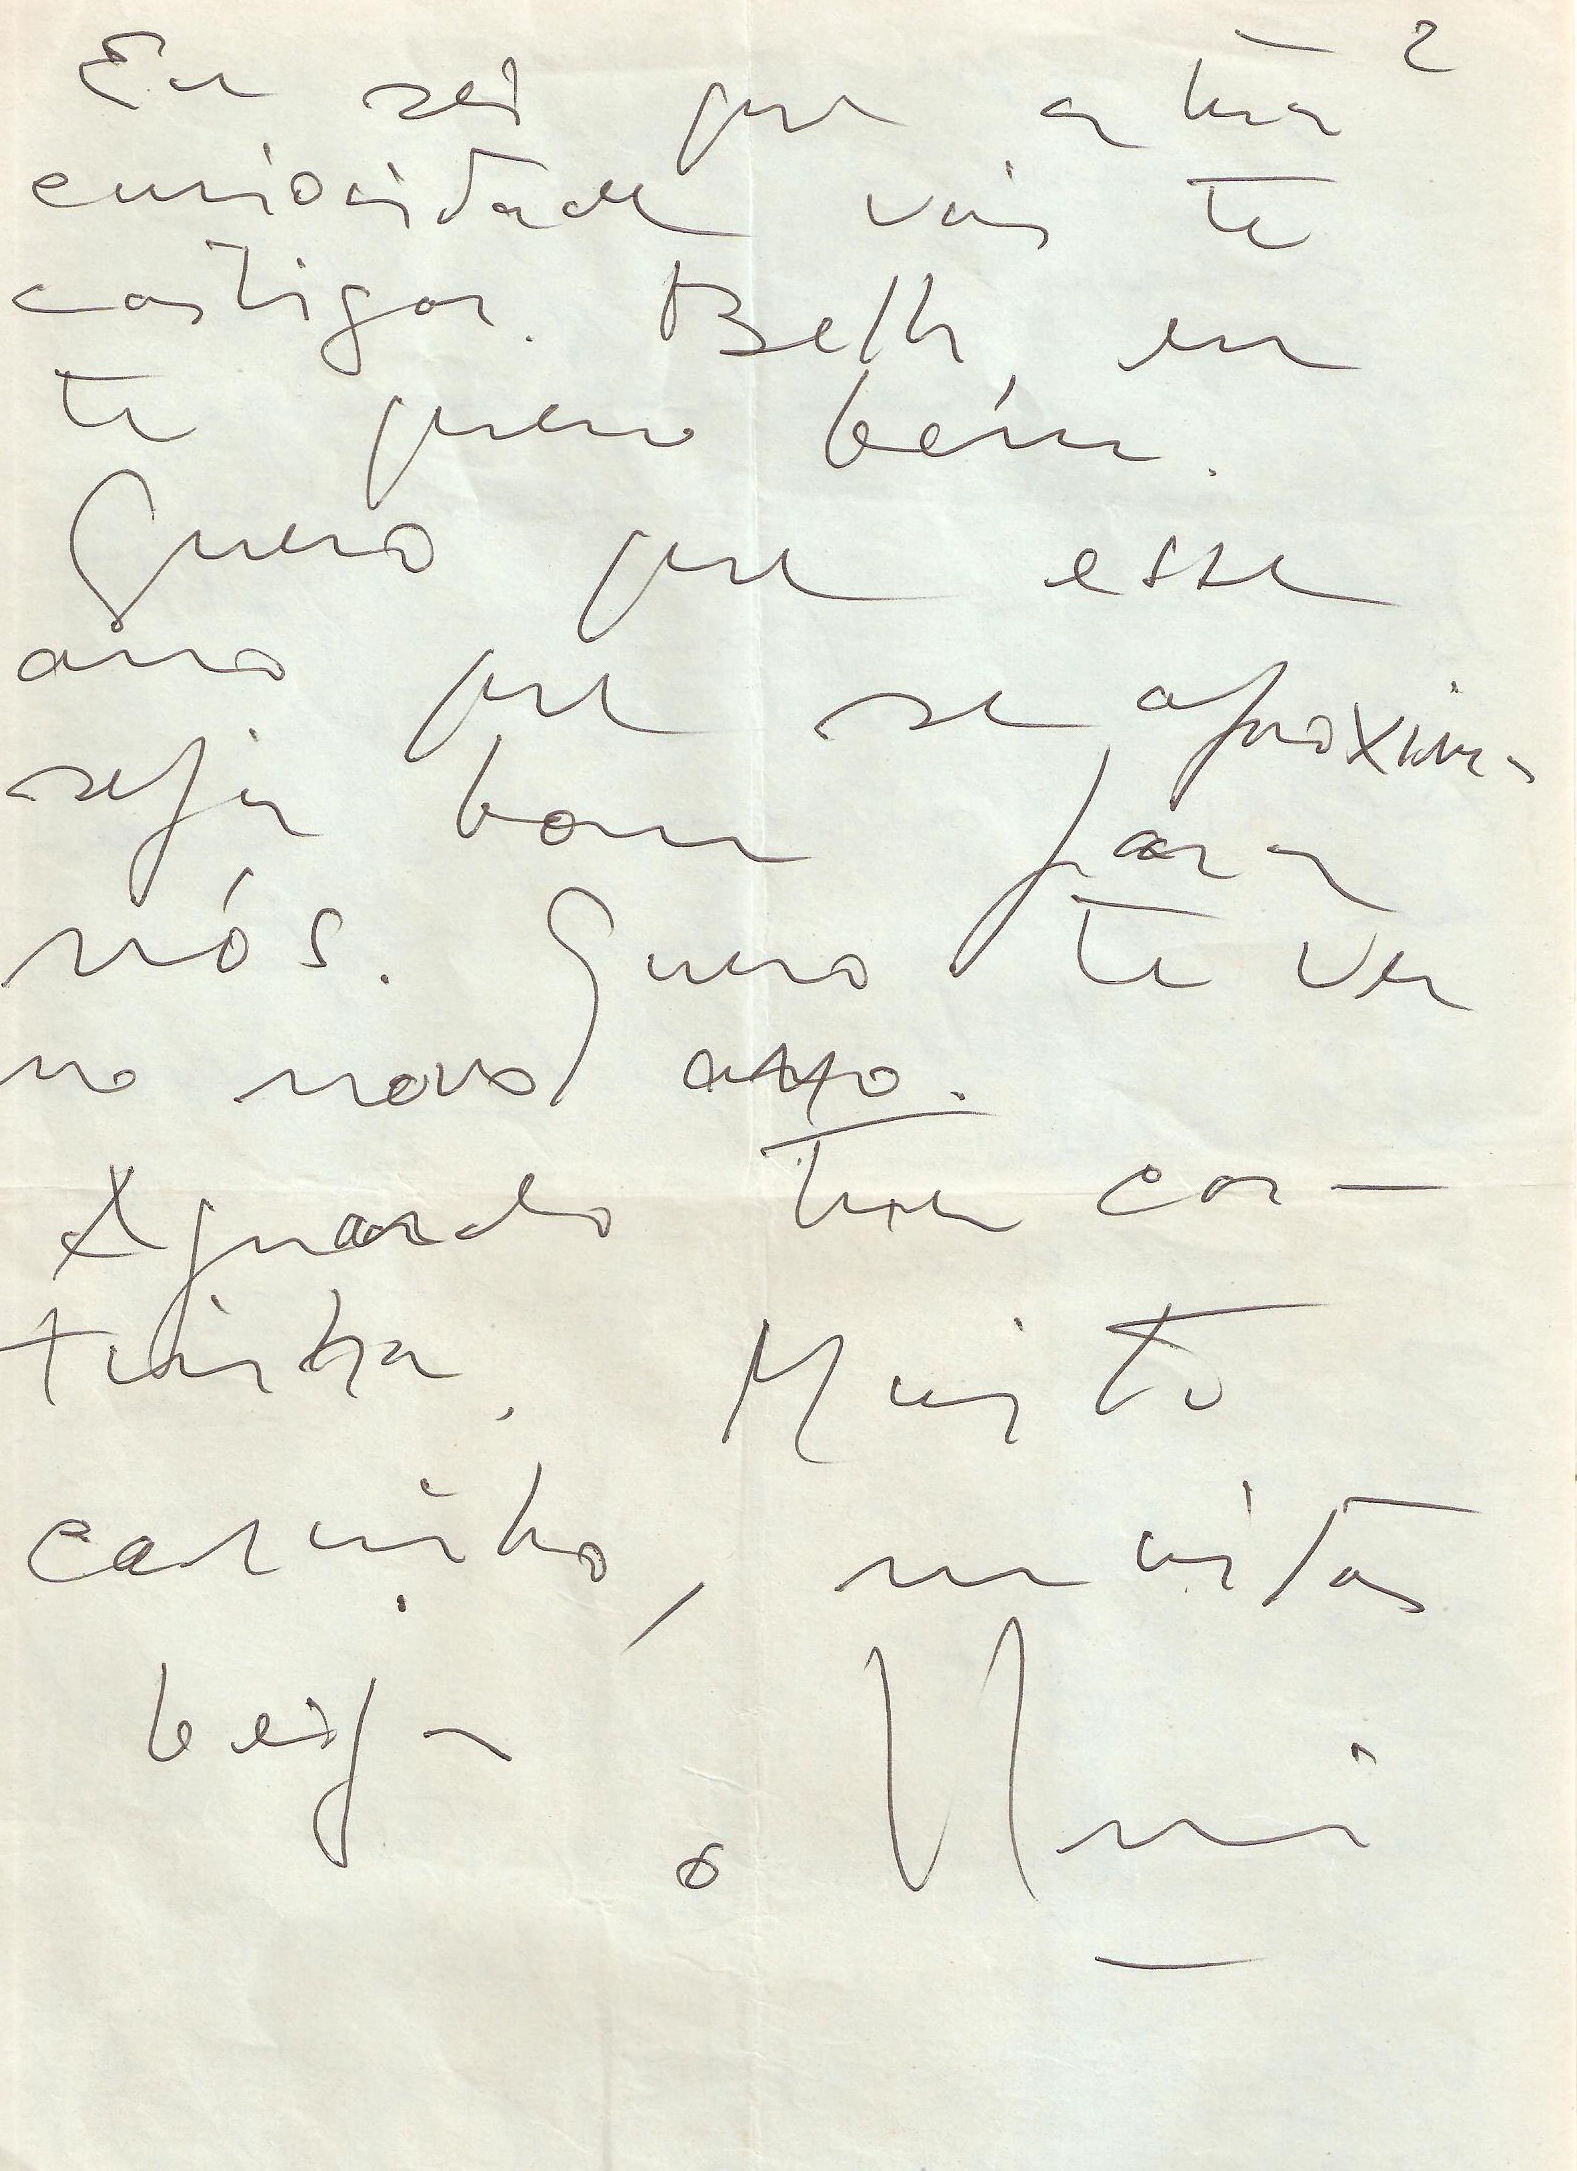 2
Eu sei que a tua
curiosidade vai te
castigar. Beth, eu
te quero bém.
Quero que esse
ano que se aproxima
seja bom para
nós. Quero te ver
no novo ano.
Aguardo tua car-
tinha. Muito
carinho, muitos
beijos
o